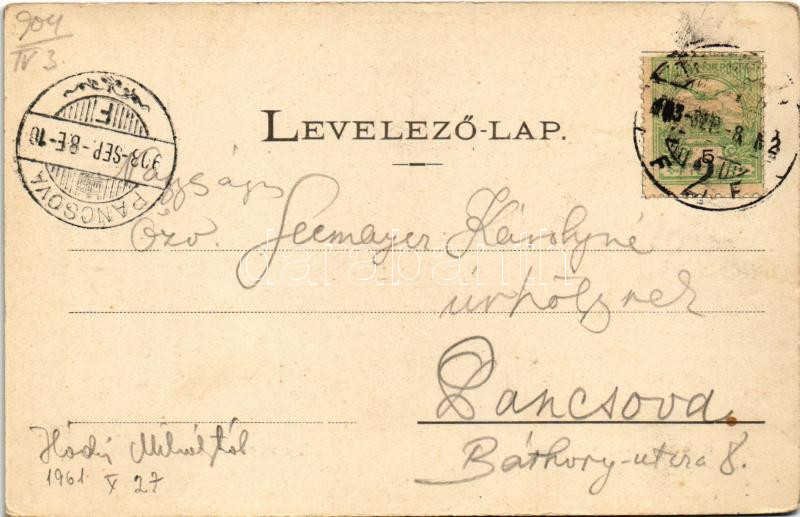 904
IV 3.
PANCSOVA
903-SEP-8.E-10
F
LEVELEZŐ-LAP.
903-SEP-8
5
F
Nagyságos
Özv. Seemayer Károlyné
úrhölgynek
Pancsova
Báthory-utcza 8.
Hódy Mihálytól
1961 X 27
darabanth